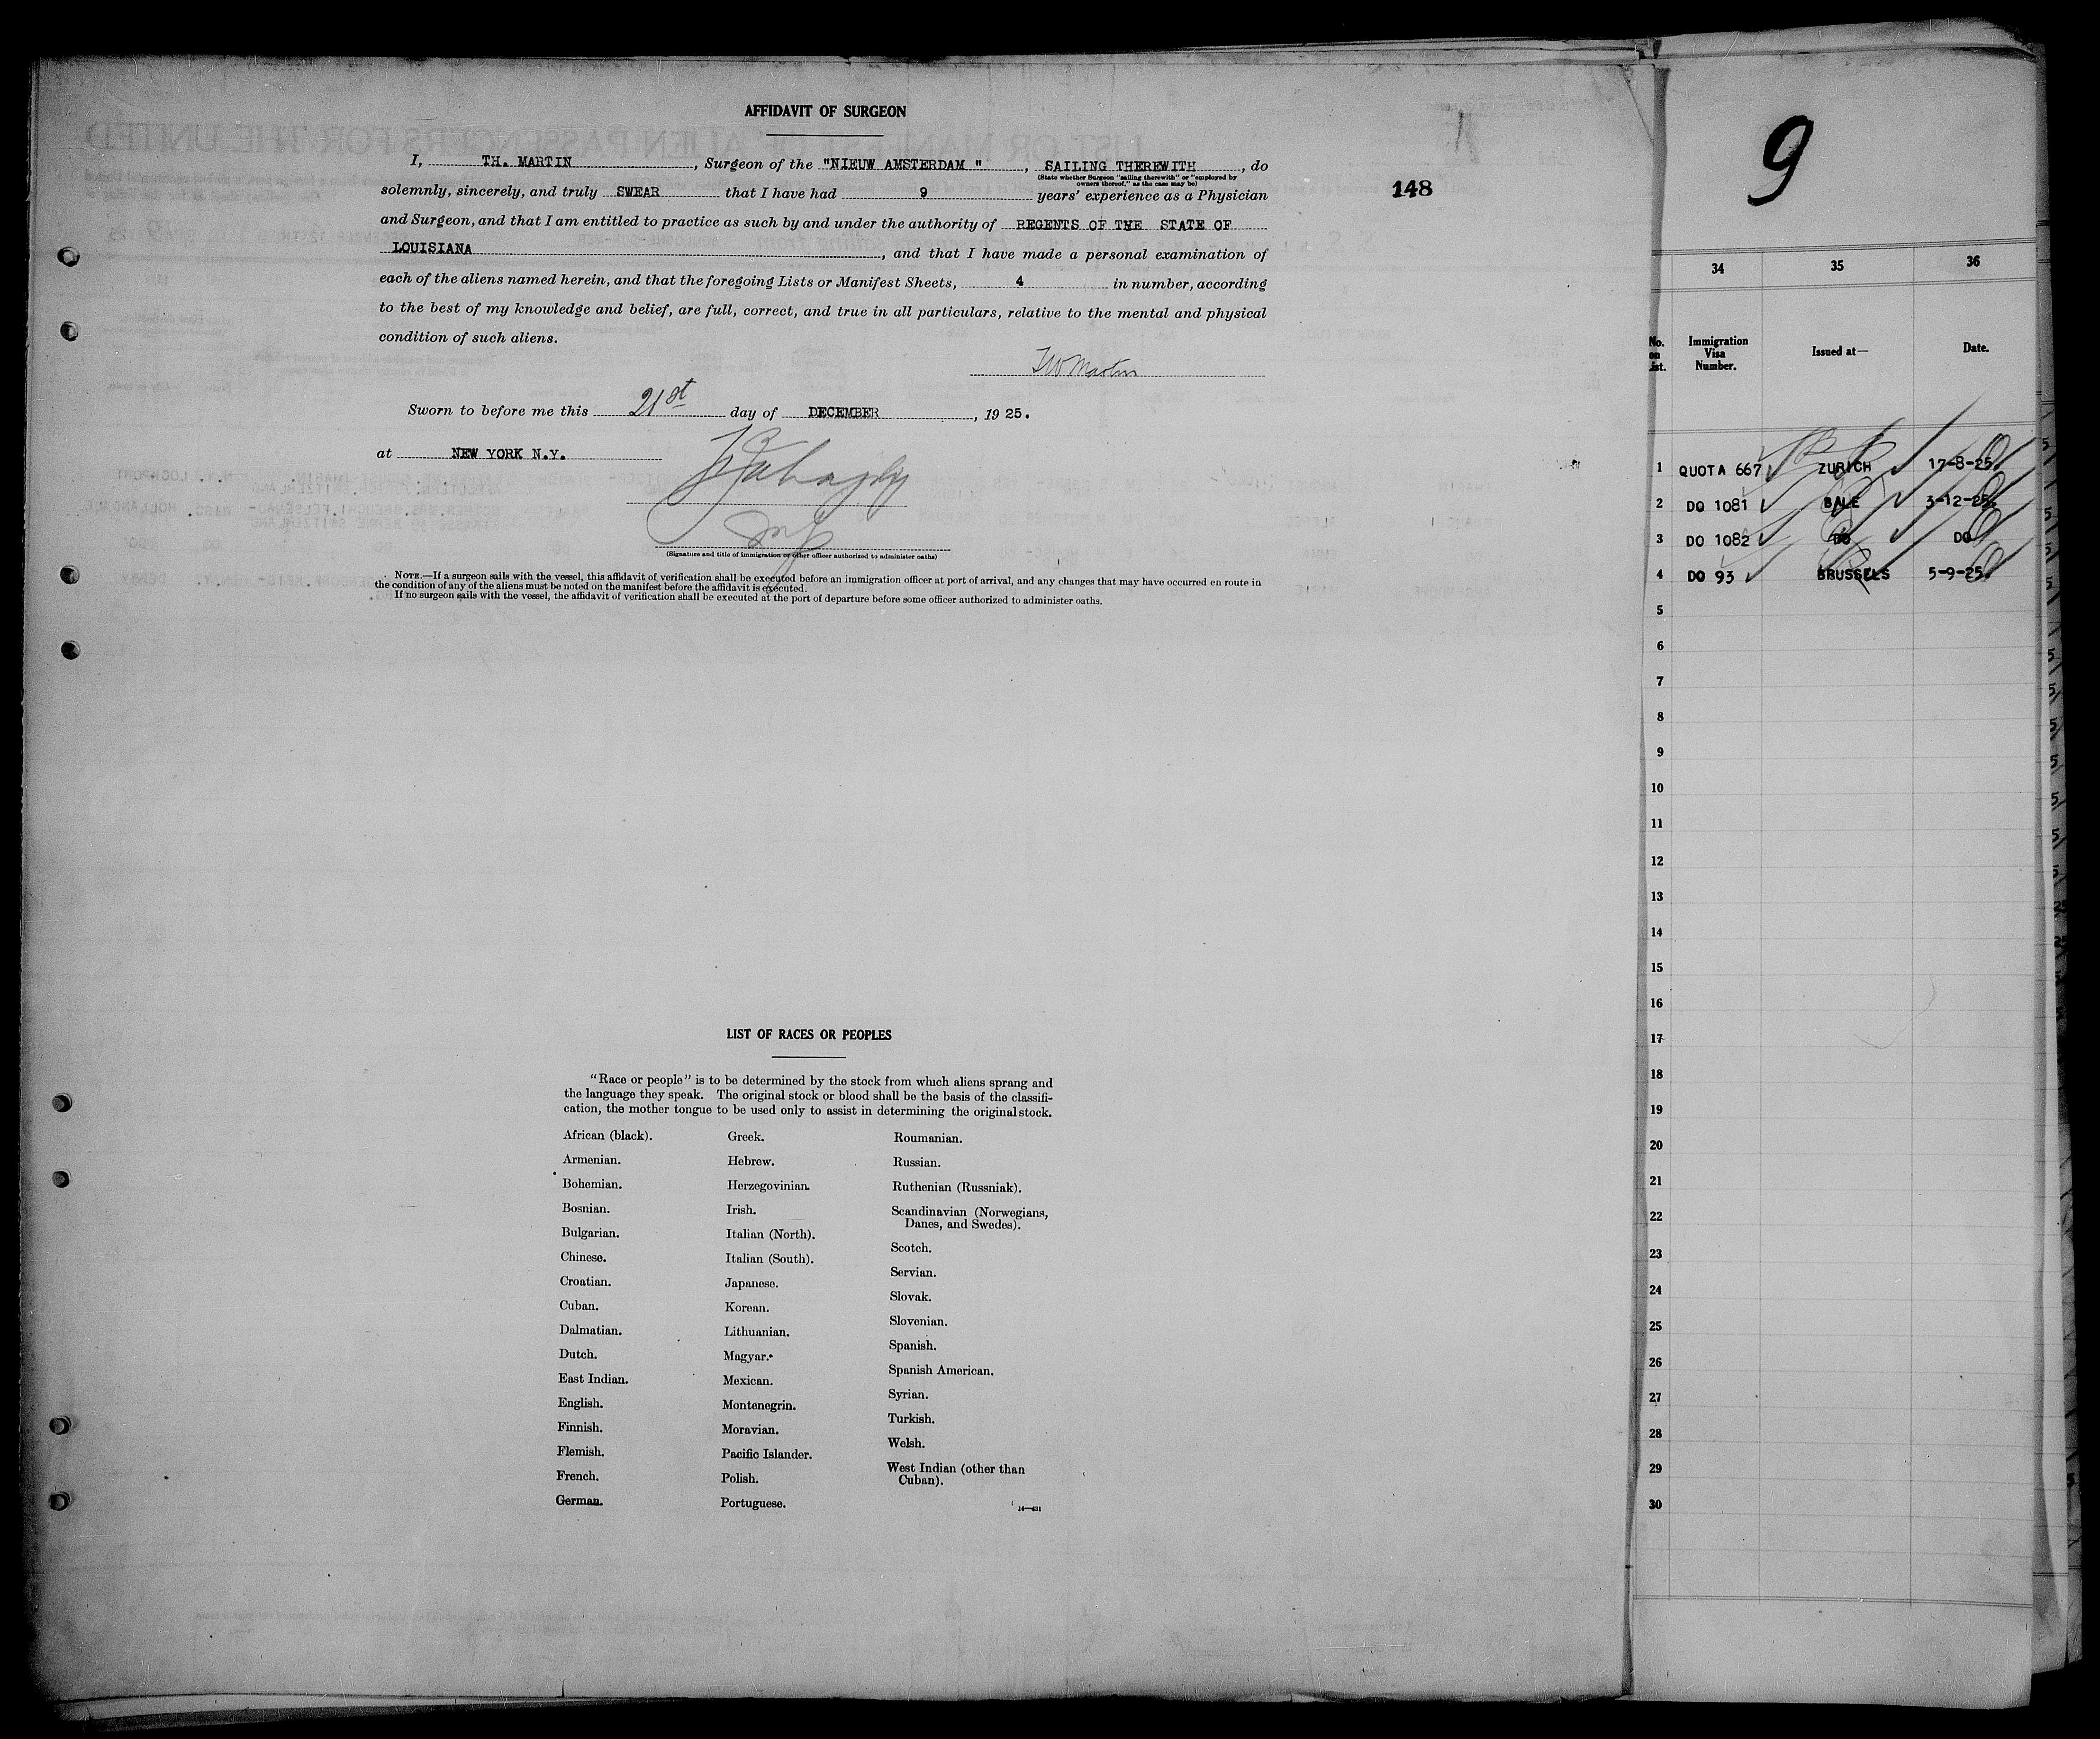 AFFIDAVIT OF SURGEON
I, TH. MARTIN, Surgeon of the "NIEUW AMSTERDAM ", SAILING THEREWITH, do
(State whether Surgeon "sailing therewith" or "employed by
owners thereof," as the case may be)
solemnly, sincerely, and truly SWEAR that I have had 9 years' experience as a Physician
and Surgeon, and that I am entitled to practice as such by and under the authority of REGENTS OF THE STATE OF
LOUISIANA, and that I have made a personal examination of
each of the aliens named herein, and that the foregoing Lists or Manifest Sheets, 4 in number, according
to the best of my knowledge and belief, are full, correct, and true in all particulars, relative to the mental and physical
condition of such aliens.
Martin
Sworn to before me this 21st day of DECEMBER, 19 25.
at NEW YORK N.Y.
(Signature and title of immigration or other officer authorized to administer oaths)
NOTE.—If a surgeon sails with the vessel, this affidavit of verification shall be executed before an immigration officer at port of arrival, and any changes that may have occurred en route in
the condition of any of the aliens must be noted on the manifest before the affidavit is executed.
If no surgeon sails with the vessel, the affidavit of verification shall be executed at the port of departure before some officer authorized to administer oaths.
148
LIST OF RACES OR PEOPLES
"Race or people" is to be determined by the stock from which aliens sprang and
the language they speak. The original stock or blood shall be the basis of the classifi-
cation, the mother tongue to be used only to assist in determining the original stock.
African (black).
Armenian.
Bohemian.
Bosnian.
Bulgarian.
Chinese.
Croatian.
Cuban.
Dalmatian.
Dutch.
East Indian.
English.
Finnish.
Flemish.
French.
German.
Greek.
Hebrew.
Herzegovinian.
Irish.
Italian (North).
Italian (South).
Japanese.
Korean.
Lithuanian.
Magyar.
Mexican.
Montenegrin.
Moravian.
Pacific Islander.
Polish.
Portuguese.
Roumanian.
Russian.
Ruthenian (Russniak).
Scandinavian (Norwegians,
Danes, and Swedes).
Scotch.
Servian.
Slovak.
Slovenian.
Spanish.
Spanish American.
Syrian.
Turkish.
Welsh.
West Indian (other than
Cuban).
14—431
9
34 35 36
No.
on
Immigration
Visa
Number.
Issued at—
Date.
1 QUOTA 667 ZURICH 17-8-25
2 DO 1081 BALE 3-12-25
3 DO 1082 DO DO
4 DO 93 BRUSSELS 5-9-25
5
6
7
8
9
10
11
12
13
14
15
16
17
18
19
20
21
22
23
24
25
26
27
28
29
30